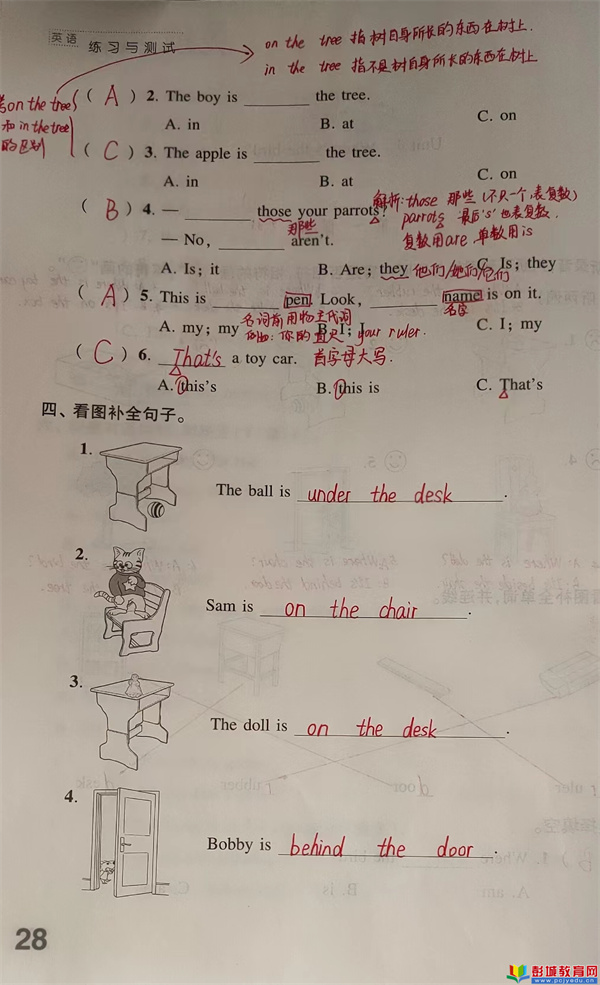 英语 练习与测试
on the tree 指树自身所长的东西在树上.
in the tree 指不是树自身所长的东西在树上
考on the tree
和in the tree
的区别
( A ) 2. The boy is ______ the tree.
A. in B. at C. on
( C ) 3. The apple is ______ the tree.
A. in B. at C. on
解析: those 那些 (不只一个, 表复数)
( B ) 4. — ______ those your parrots?
parrots 最后's'也表复数.
那些
— No, ______ aren't.
复数用are 单数用is
A. Is; it B. Are; they 他们/她们/它们 C. Is; they
( A ) 5. This is ______ pen. Look, ______ name is on it.
名词前用物主代词 名字
A. my; my B. I; I C. I; my
例如: 你的直尺 your ruler.
( C ) 6. That's a toy car. 首字母大写.
A. this's B. this is C. That's
四、看图补全句子。
1.
The ball is under the desk.
2.
Sam is on the chair.
3.
The doll is on the desk.
4.
Bobby is behind the door.
28
彭城教育网
www.pcjyedu.cn